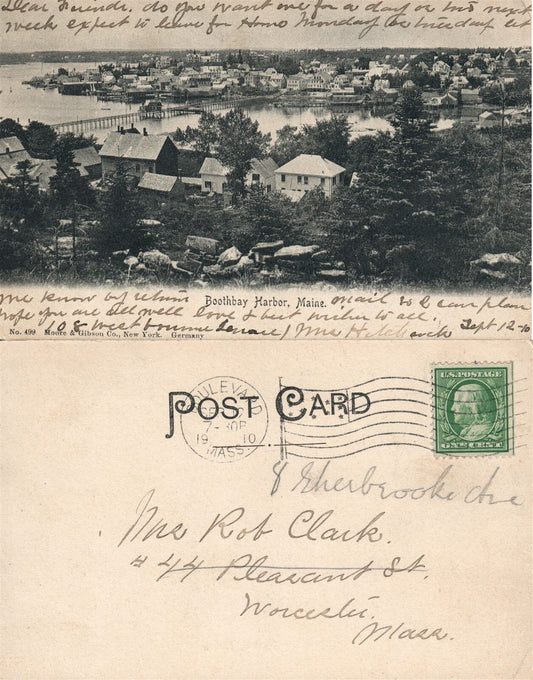 Dear Friends. do you want me for a day or two next
week expect to leave for Home Monday or Tuesday let
me know by return mail so I can plan
hope you are all well love & best wishes to all.
108 Westbourne Terrace / Mrs Hitchcock Sept 12-10
Boothbay Harbor, Maine.
No. 499 Moore & Gibson Co., New York. Germany
POST CARD
BOULEVARD
7-30P
19 10
MASS.
U.S. POSTAGE
ONE CENT
8 Sherbrooke Ave
Mrs Rob Clark.
# 44 Pleasant St.
Worcester,
Mass.